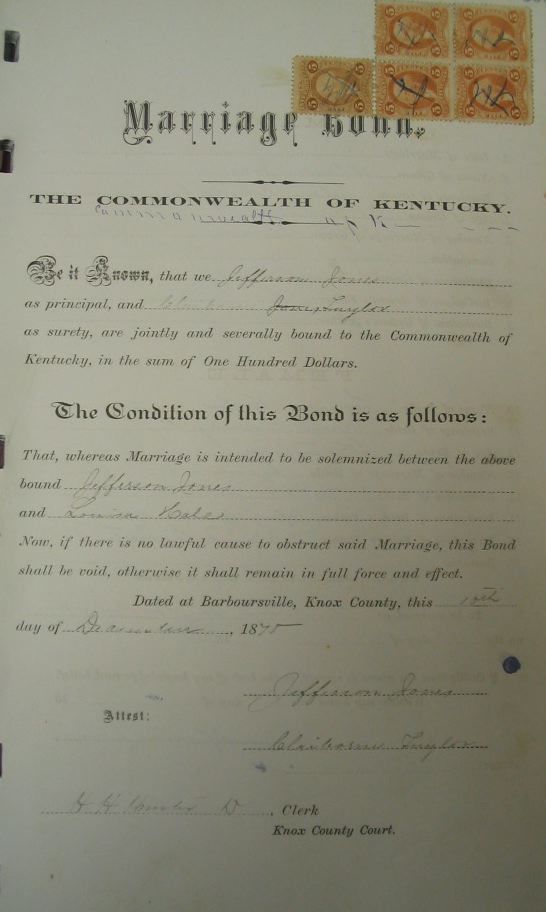 Marriage Bond.
THE COMMONWEALTH OF KENTUCKY.
Commonwealth of K
Be it Known, that we Jefferson Jones
as principal, and Jones Taylor
as surety, are jointly and severally bound to the Commonwealth of
Kentucky, in the sum of One Hundred Dollars.
The Condition of this Bond is as follows:
That, whereas Marriage is intended to be solemnized between the above
bound Jefferson Jones
and Louisa Hale
Now, if there is no lawful cause to obstruct said Marriage, this Bond
shall be void, otherwise it shall remain in full force and effect.
Dated at Barboursville, Knox County, this 10th
day of December, 187
Jefferson Jones
Attest:
Claiborne Taylor
H H, Clerk
Knox County Court.